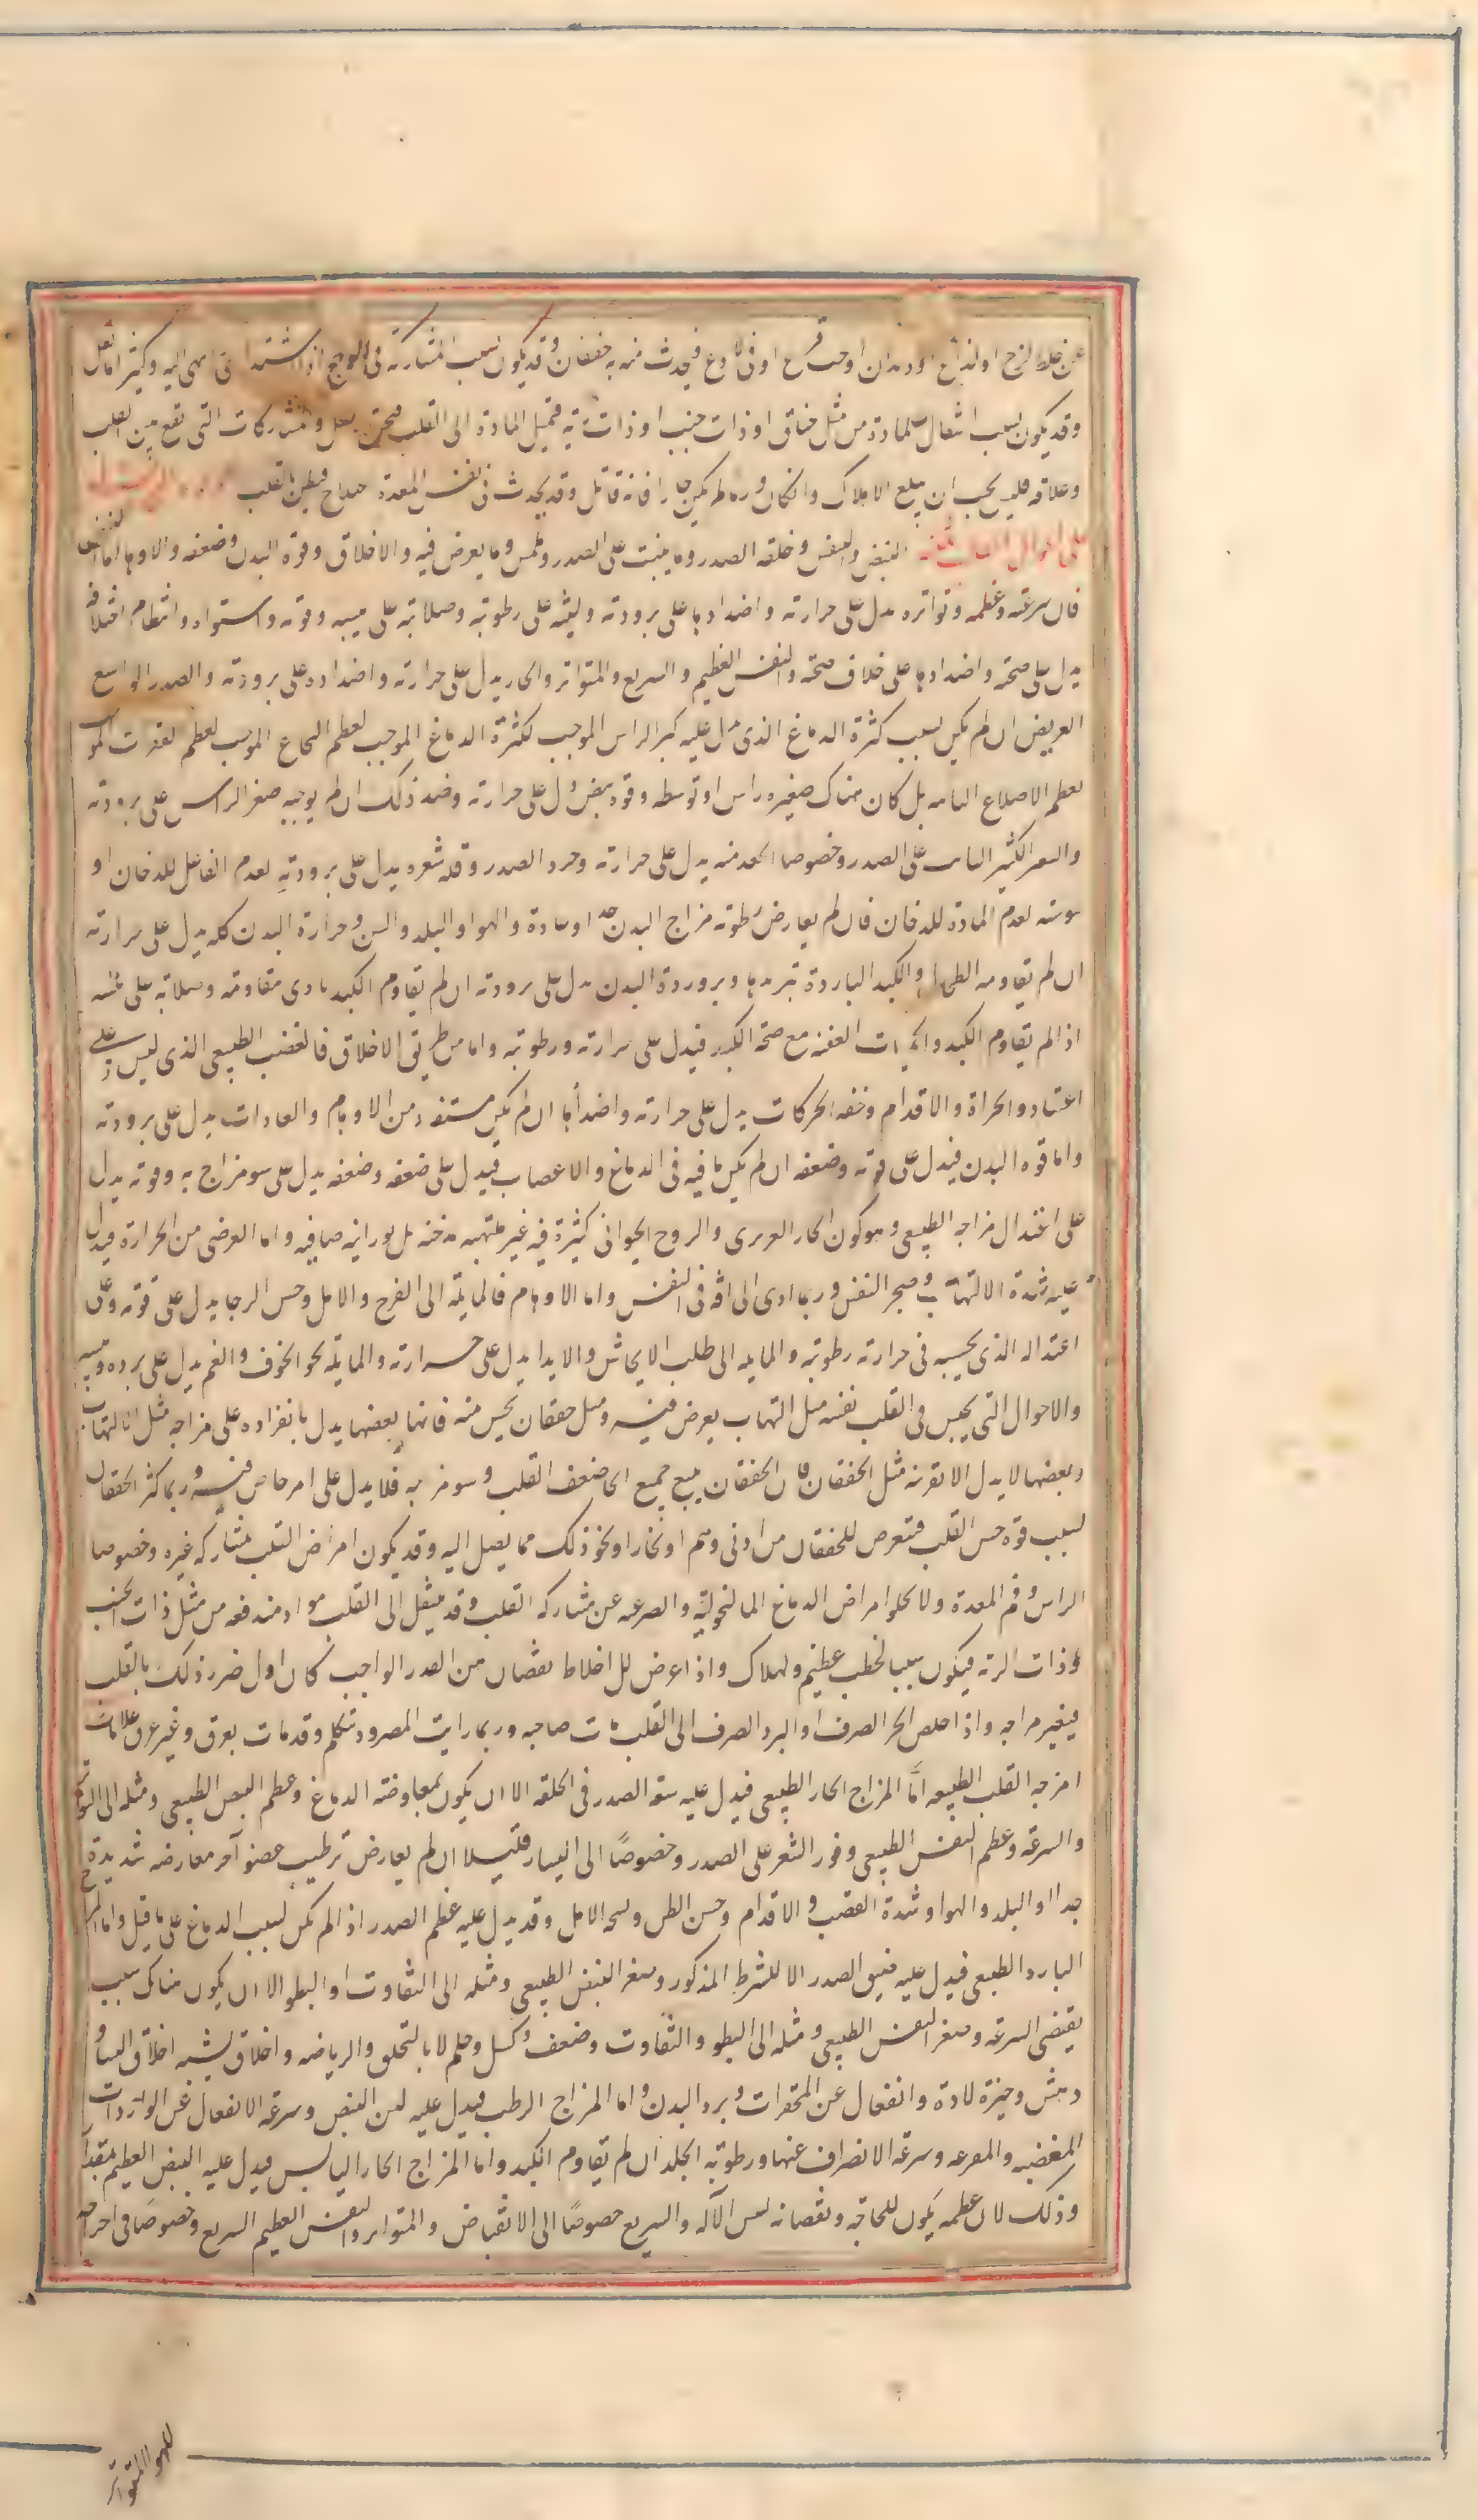 عن خلط لزج او لذاع او ديدان او حب قرع او قئ فيحدث منه خفقان وقد يكون بسبب المشاركة فى الوجع اذا اشتد انتهى اليه وكثيرا ما يقتل
وقد يكون بسبب انتقال المادة من مثل خناق او ذات جنب او ذات رية فتميل المادة الى القلب فتخنق والمشاركات التى تقع بين القلب
وعلاقه يجب ان يبلغ الاهلاك وان كان ورم لم يكن حارا فانه قاتل وقد يحدث فى نفس المعدة فيظن بالقلب
على احوال القلب النبض والنفس وخلقه الصدر وما ينبت على الصدر وملمس وما يعرض فيه والاخلاق وقوة البدن وضعفه والاوهام اما النبض
فان سرعته وعظمه وتواتره يدل على حرارته واضدادها على برودته ولينه على رطوبته وصلابته على يبسه وقوته واستواه وانتظام اختلافه
يدل على صحته واضدادها على خلاف صحته والنفس العظيم والسريع والمتواتر والحار يدل على حرارته واضداده على برودته والصدر الواسع
العريض ان لم يكن بسبب كثرة الدماغ الذى يدل عليه كبر الراس الموجب لكثرة الدماغ الموجب لعظم النخاع الموجب لعظم الفقرات الموجب
لعظم الاضلاع النابته بل كان هناك صغر راس او توسطه وقوة نبض دل على حرارته وضد ذلك ان لم يوجبه صغر الراس على برودته
والشعر الكثير النابت على الصدر وخصوصا الجعد منه يدل على حرارته وجرد الصدر وقله شعره يدل على برودته لعدم الفاعل للدخان او
يبوسته لعدم المادة للدخان فان لم يعارض رطوبه مزاج البدن جدا او عادة والهوا والبلد والسن وحرارة البدن كله يدل على حرارته
ان لم تقاومه الكبد الباردة تبريدها وبرودة البدن يدل على برودته ان لم تقاوم الكبد مقاومته وصلابته على يبسه
اذا لم تقاوم الكبد والحميات العفنه مع صحة الكبد فيدل على حرارته ورطوبته واما من طريق الاخلاق فالغضب الطبيعى الذى ليس على
اعتياد والجراة والاقدام وخفه الحركات يدل على حرارته واضدادها ان لم يكن مستفاد من الاوهام والعادات يدل على برودته
واما قوه البدن فيدل على قوته وضعفه ان لم يكن ما فيه فى الدماغ والاعصاب فيدل على ضعفه وضعفه يدل على سو مزاج به وقوته يدل
على اعتدال مزاجه الطبيعى وهو كون الحار الغريزى والروح الحيوانى كثيرة فيه غير ملتهبه مدخنه بل نورانيه صافيه واما العرضى من الحرارة فيدل
عليه شدة الالتهاب وضجر النفس وربما ادى الى افه فى النفس واما الاوهام فالمايلة الى الفرح والامل وحسن الرجا يدل على قوته وعلى
اعتداله الذى يحسبه فى حرارته رطوبته والمايله الى طلب الايحاش والايذا يدل على حرارته والمايلة نحو الخوف والغم يدل على برده ويبسه
والاحوال التى يحس فى القلب نفسه مثل التهاب يعرض فيه ومثل خفقان يحس منه فانها بعضها يدل بانفراده على مزاجه مثل الالتهاب
وبعضها لا يدل الا بقرينه مثل الخفقان فان الخفقان يتبع جميع انحا ضعف القلب وسو مزاجه فلا يدل على امر خاص فيه وربما كثر الخفقان
لسبب قوة حس القلب فتعرض للخفقان من ادنى وهم او بخار او نحو ذلك مما يصل اليه وقد يكون امراض القلب بمشاركه غيره وخصوصا
الراس وفم المعدة ولا يخلو امراض الدماغ المالنخولية والصرعيه عن مشاركه القلب وقد ينتقل الى القلب مواد مندفعه من مثل ذات الجنب
وذات الرئه فيكون سببا لخطب عظيم ولهلاك واذا عرض للاخلاط نقصان من القدر الواجب كان اول ضرر ذلك بالقلب
فيتغير مزاجه واذا خلص الحر الصرف او البرد الصرف الى القلب مات صاحبه وربما رايت المصرود يتكلم وقد مات بعرق وغير عرق علامات
امزجه القلب الطبيعيه اما المزاج الحار الطبيعى فيدل عليه سعه الصدر فى الخلقه الا ان يكون بمعاوضه الدماغ وعظم النبض الطبيعى وميله الى التواتر
والسرعه وعظم النفس الطبيعى وفور الشعر على الصدر وخصوصا الى اليسار قليلا ان لم يعارض ترطيب عضو آخر معارضه شديدة
جدا او البلد والهوا وشدة الغضب والاقدام وحسن الظن وفسحه الامل وقد يدل عليه عظم الصدر اذا لم يكن بسبب الدماغ على ما قيل واما المزاج
البارد الطبيعى فيدل عليه ضيق الصدر الا للشرط المذكور وصغر النبض الطبيعى وميله الى التفاوت او البطو الا ان يكون هناك سبب
يقتضى السرعه وصغر النفس الطبيعى وميله الى البطو والتفاوت وضعف وكسل وحلم لا بالتخلق والرياضه واخلاق يشبه اخلاق النسا و
دهش وحيرة وانفعال عن المحقرات وبرد البدن واما المزاج الرطب فيدل عليه لين النبض وسرعه الانفعال عن الواردات
المغضبه والمفرحه وسرعه الانصراف عنها ورطوبه الجلد ان لم تقاوم الكبد واما المزاج الحار اليابس فيدل عليه النبض العظيم بمقدار
وذلك لان عظمه يكون للحاجه ونقصانه ليبس الآله والسريع خصوصا الى الانقباض والمتواتر والنفس العظيم السريع وخصوصا فى اخراجه
للهوا المتواتر